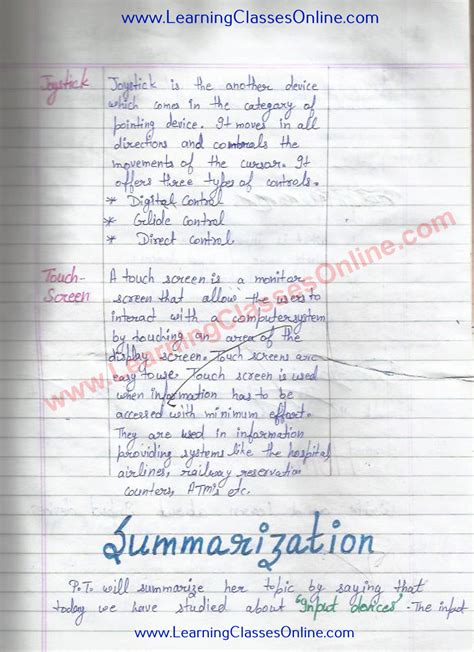 www.LearningClassesOnline.com
Joystick
Joystick is the another device
which comes in the category of
pointing device. It moves in all
directions and controls the
movements of the cursor. It
offers three types of controls.
* Digital Control
* Glide Control
* Direct Control.
Touch-
Screen
A touch screen is a monitor
screen that allow the users to
interact with a computer system
by touching an area of the
display screen. Touch screens are
easy to use. Touch screen is used
when information has to be
accessed with minimum effort.
They are used in information
providing systems like the hospital
airlines, railway reservation
counters, ATM's etc.
www.LearningClassesOnline.com
Summarization
P.T. will summarize her topic by saying that
today we have studied about "Input devices" - The input
www.LearningClassesOnline.com